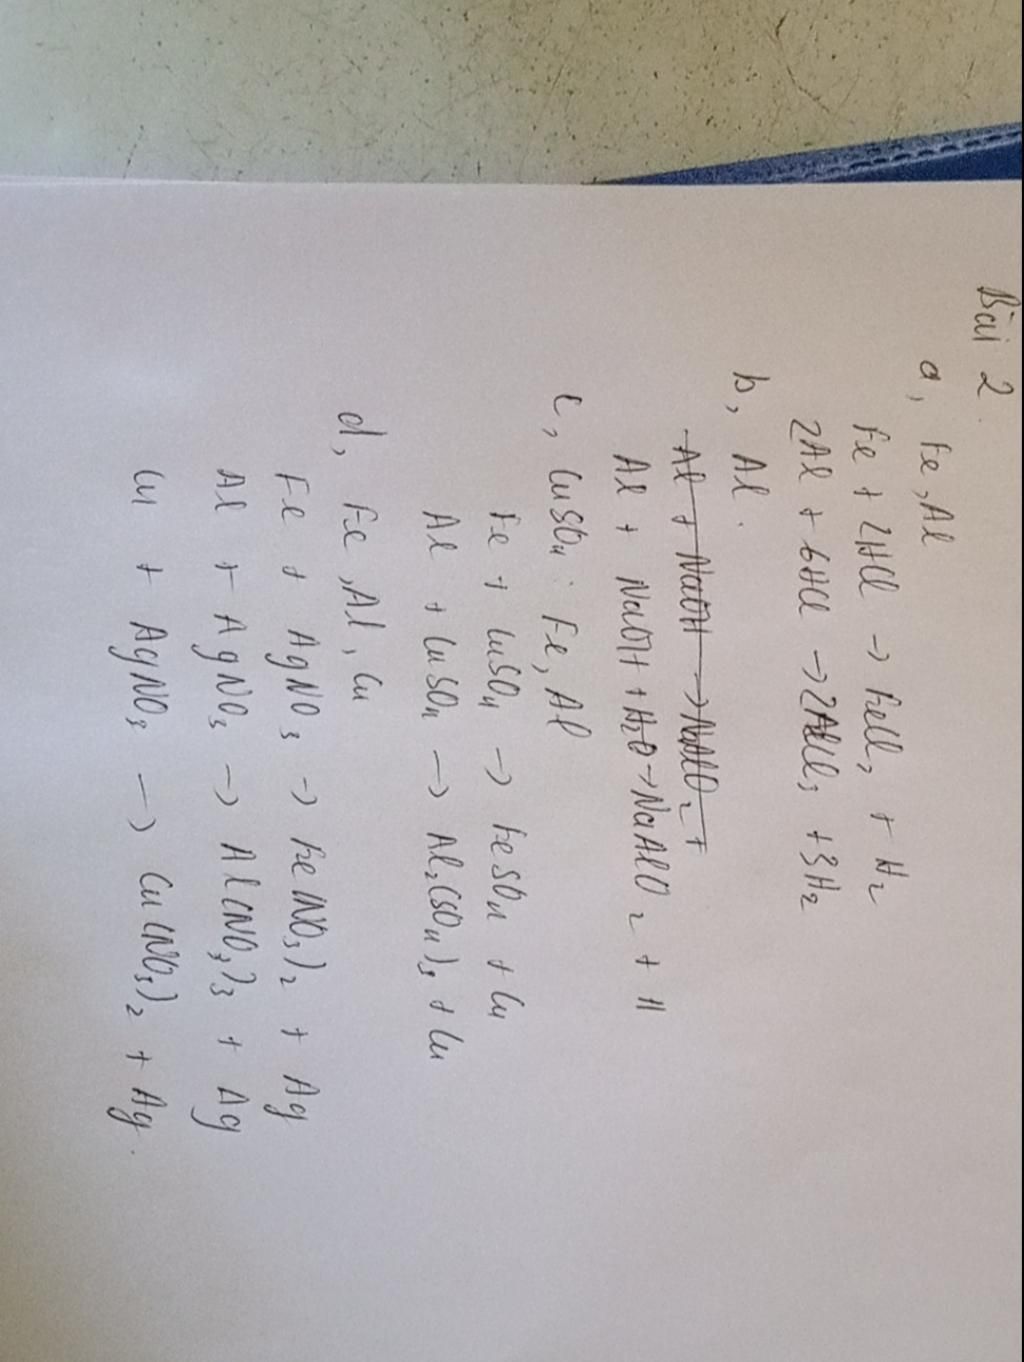 Bài 2.
a, Fe, Al
Fe + 2HCl → FeCl2 + H2
2Al + 6HCl → 2AlCl3 + 3H2
b, Al.
Al + NaOH → NaAlO2 +
Al + NaOH + H2O → NaAlO2 + H
c, CuSO4 : Fe, Al
Fe + CuSO4 → FeSO4 + Cu
Al + CuSO4 → Al2(SO4)3 + Cu
d, Fe, Al, Cu
Fe + AgNO3 → Fe(NO3)2 + Ag
Al + AgNO3 → Al(NO3)3 + Ag
Cu + AgNO3 → Cu(NO3)2 + Ag.